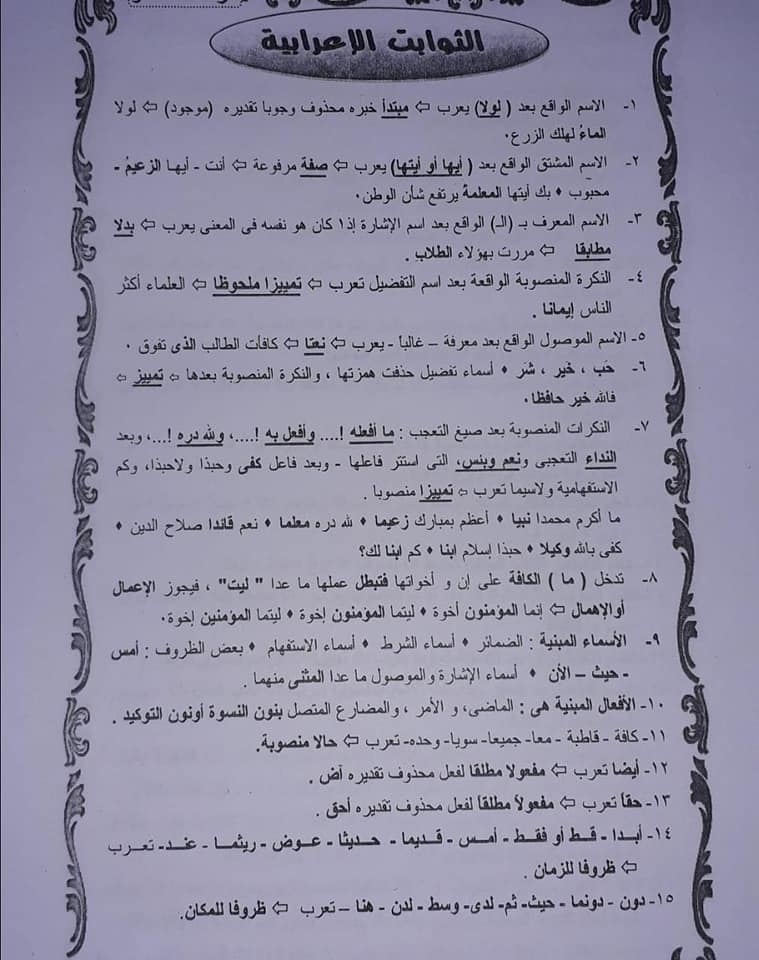 الثوابت الإعرابية
١- الاسم الواقع بعد ( لولا) يعرب ⇦ مبتدأ خبره محذوف وجوبا تقديره (موجود) ⇦ لولا
الماءُ لهلك الزرع.
٢- الاسم المشتق الواقع بعد ( أيها أو أيتها) يعرب ⇦ صفة مرفوعة ⇦ أنت - أيها الزعيمُ -
محبوب ♦ بك أيتها المعلمة يرتفع شأن الوطن.
٣- الاسم المعرف بـ (الـ) الواقع بعد اسم الإشارة إذا كان هو نفسه فى المعنى يعرب ⇦ بدلا
مطابقا ⇦ مررت بهؤلاء الطلاب .
٤- النكرة المنصوبة الواقعة بعد اسم التفضيل تعرب ⇦ تمييزا ملحوظا ⇦ العلماء أكثر
الناس إيمانا .
٥- الاسم الموصول الواقع بعد معرفة – غالباً - يعرب ⇦ نعتا ⇦ كافأت الطالب الذى تفوق .
٦- حَب ، خَير ، شَر ♦ أسماء تفضيل حذفت همزتها ، والنكرة المنصوبة بعدها ⇦ تمييز ⇦
فالله خير حافظا.
٧- النكرات المنصوبة بعد صيغ التعجب : ما أفعله !.... وأفعل به !....، ولله دره !...، وبعد
النداء التعجبى ونعم وبئس، التى استتر فاعلها - وبعد فاعل كفى وحبذا ولاحبذا، وكم
الاستفهامية ولاسيما تعرب ⇦ تمييزا منصوبا .
ما أكرم محمدا نبيا ♦ أعظم بمبارك زعيما ♦ لله دره معلما ♦ نعم قائدا صلاح الدين ♦
كفى بالله وكيلا ♦ حبذا إسلام ابنا ♦ كم ابنا لك؟
٨- تدخل ( ما ) الكافة على إن و أخواتها فتبطل عملها ما عدا " ليت" ، فيجوز الإعمال
أوالإهمال ⇦ إنما المؤمنون أخوة ♦ ليتما المؤمنون إخوة ♦ ليتما المؤمنين إخوة.
٩- الأسماء المبنية : الضمائر ♦ أسماء الشرط ♦ أسماء الاستفهام ♦ بعض الظروف : أمس
- حيث – الأن ♦ أسماء الإشارة والموصول ما عدا المثنى منهما.
١٠- الأفعال المبنية هى : الماضى، و الأمر ، والمضارع المتصل بنون النسوة أونون التوكيد .
١١- كافة - قاطبة - معا- جميعا- سويا- وحده- تعرب ⇦ حالا منصوبة.
١٢- أيضا تعرب ⇦ مفعولا مطلقا لفعل محذوف تقديره آض .
١٣- حقاً تعرب ⇦ مفعولاً مطلقاً لفعل محذوف تقديره أحق .
١٤- أبدا - قط أو فقط - أمس - قديما - حديثا - عوض - ريثما - عند- تعرب
⇦ ظروفا للزمان .
١٥- دون - دونما - حيث- ثم- لدى- وسط - لدن - هنا – تعرب ⇦ ظروفا للمكان.